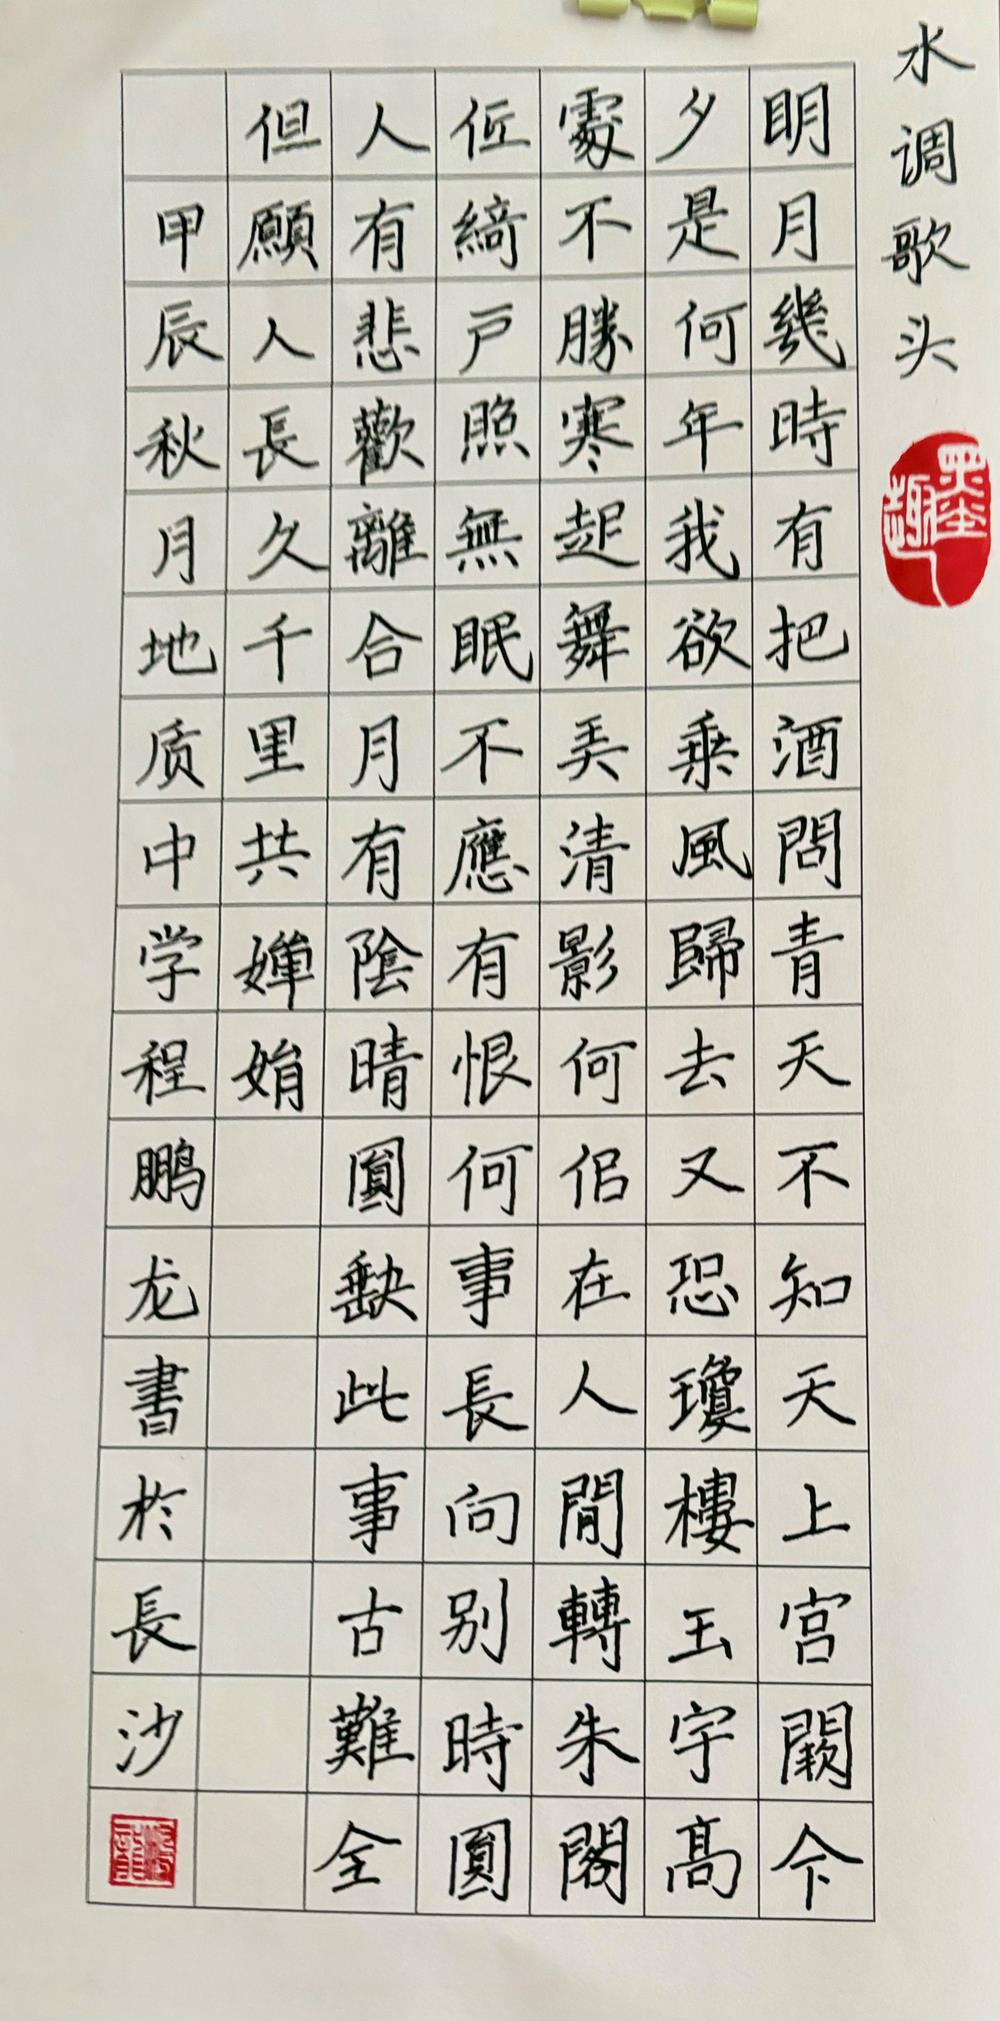 水调歌头
墨趣
明月幾時有把酒問青天不知天上宫闕今
夕是何年我欲乗風歸去又恐瓊樓玉宇髙
處不勝寒起舞弄清影何佀在人間轉朱閣
低綺戸照無眠不應有恨何事長向别時圓
人有悲歡離合月有陰晴圓缺此事古難全
但願人長久千里共嬋娟
甲辰秋月地质中学程鹏龙書於長沙